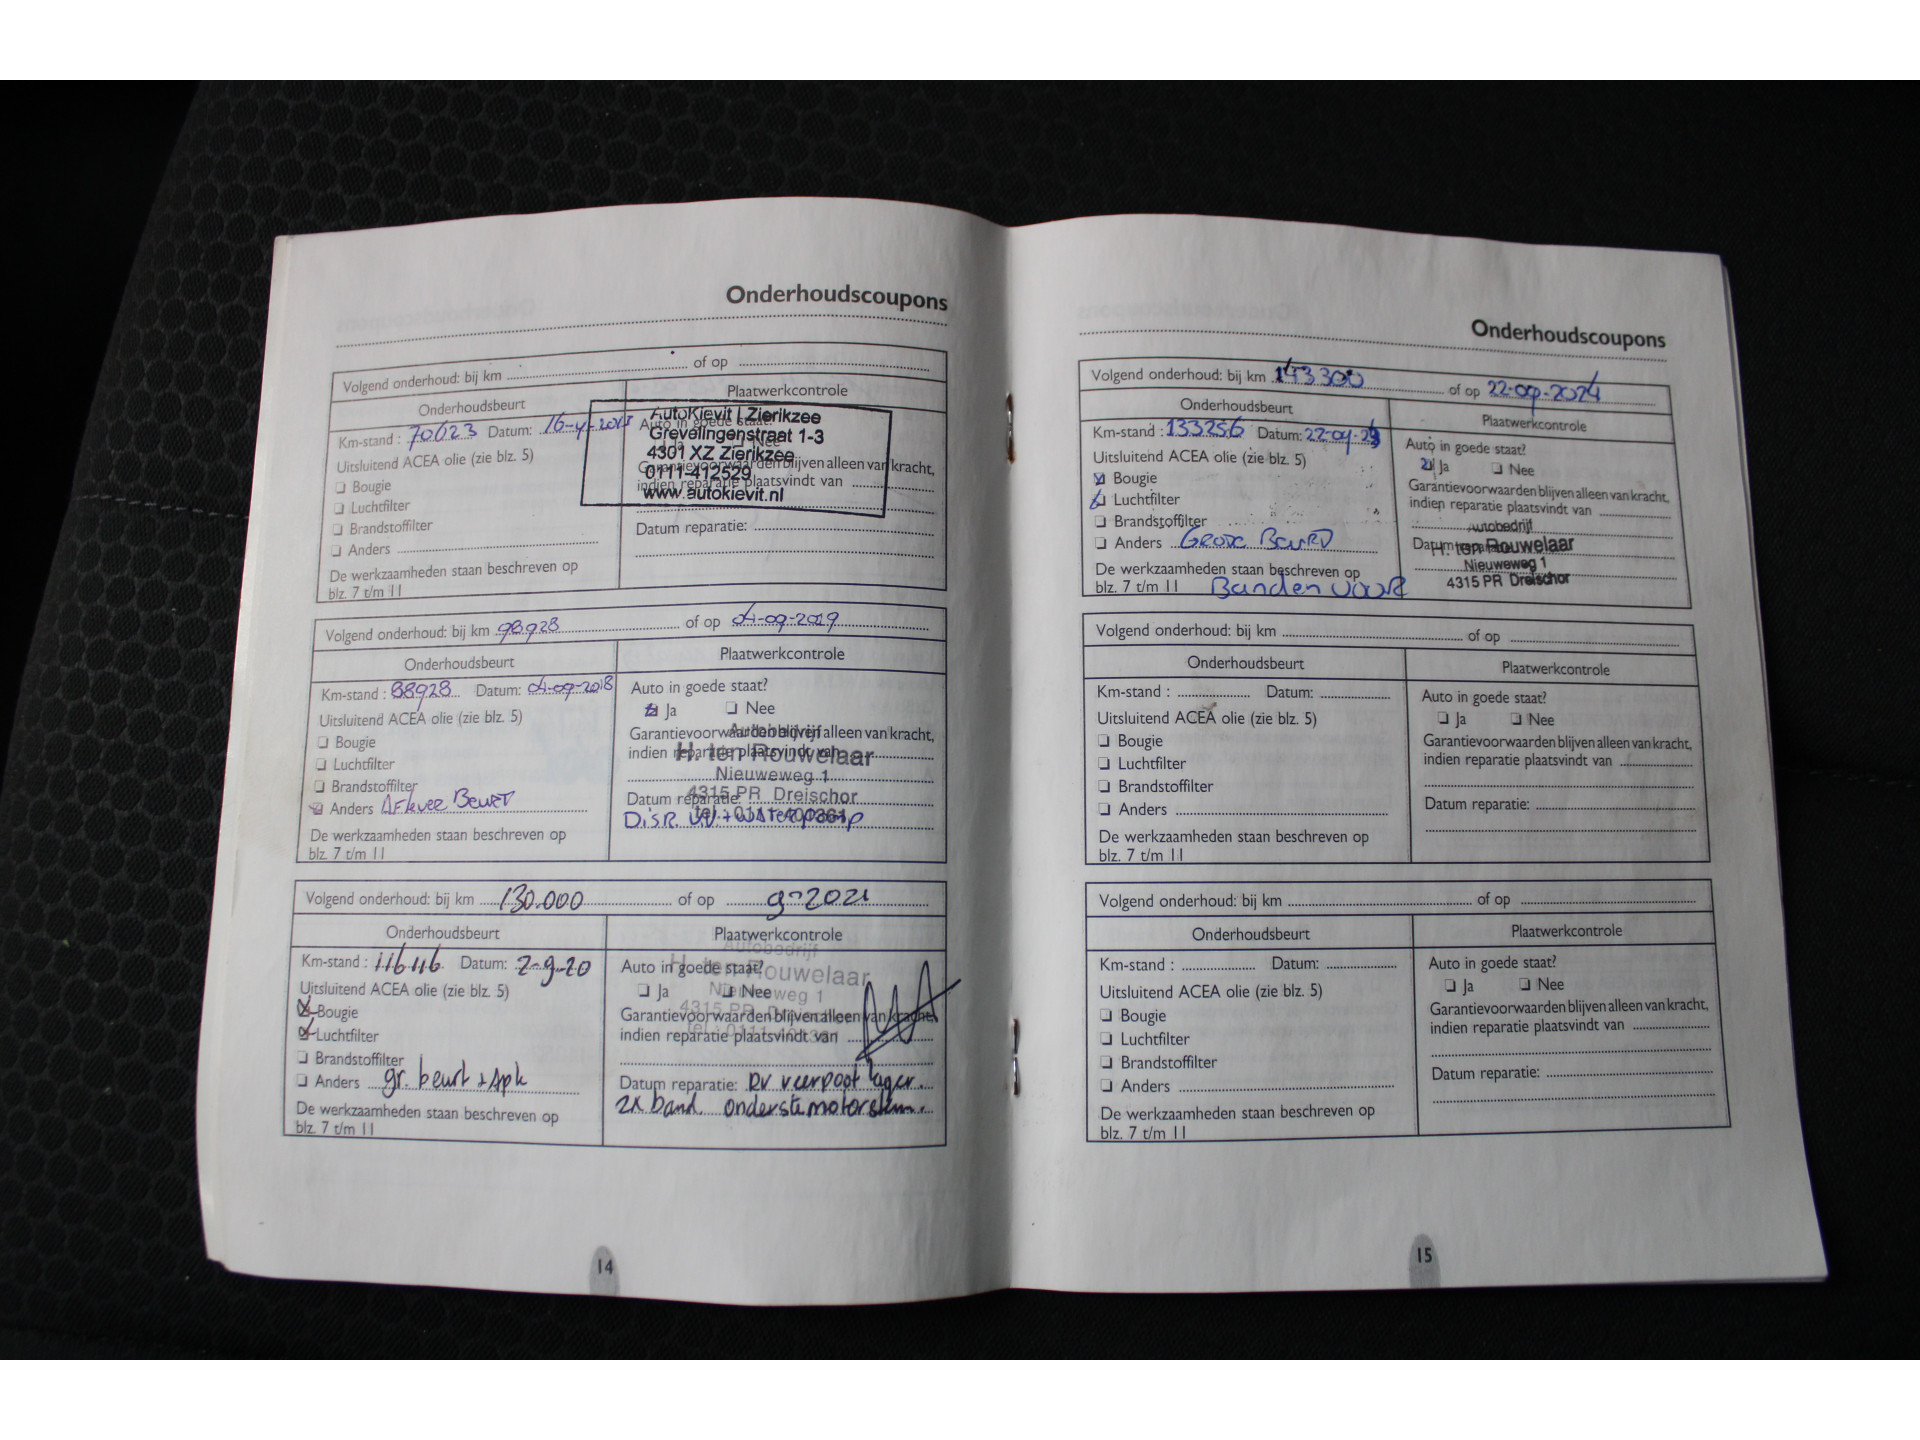 Onderhoudscoupons
Volgend onderhoud: bij km of op
Onderhoudsbeurt
Plaatwerkcontrole
Km-stand : 70623 Datum:
Auto in goede staat?
Ja Nee
AutoKievit | Zierikzee
Grevelingenstraat 1-3
4301 XZ Zierikzee
0111-412529
www.autokievit.nl
Uitsluitend ACEA olie (zie blz. 5)
Bougie
Luchtfilter
Brandstoffilter
Anders
Garantievoorwaarden blijven alleen van kracht,
indien reparatie plaatsvindt van
Datum reparatie:
De werkzaamheden staan beschreven op
blz. 7 t/m 11
Volgend onderhoud: bij km 98928 of op 04-09-2019
Onderhoudsbeurt
Plaatwerkcontrole
Km-stand : 88928 Datum: 04-09-2018
Uitsluitend ACEA olie (zie blz. 5)
Bougie
Luchtfilter
Brandstoffilter
Anders Aflever Beurt
De werkzaamheden staan beschreven op
blz. 7 t/m 11
Auto in goede staat?
Ja Nee
Garantievoorwaarden blijven alleen van kracht,
indien reparatie plaatsvindt van
Datum reparatie:
Autobedrijf
H. ten Rouwelaar
Nieuweweg 1
4315 PR Dreischor
tel.: 0111-401361
Disr. + waterpomp
Volgend onderhoud: bij km 130.000 of op 9-2021
Onderhoudsbeurt
Plaatwerkcontrole
Km-stand : 116116 Datum: 2-9-20
Uitsluitend ACEA olie (zie blz. 5)
Bougie
Luchtfilter
Brandstoffilter
Anders gr. beurt + apk
De werkzaamheden staan beschreven op
blz. 7 t/m 11
Auto in goede staat?
Ja Nee
Garantievoorwaarden blijven alleen van kracht,
indien reparatie plaatsvindt van
Autobedrijf
H. ten Rouwelaar
Nieuweweg 1
4315 PR Dreischor
tel.: 0111-401361
Datum reparatie: RV veerpoot lager.
2x band. onderste motorsteun.
14
Onderhoudscoupons
Volgend onderhoud: bij km 143300 of op 22-09-2024
Onderhoudsbeurt
Plaatwerkcontrole
Km-stand : 133256 Datum:
Uitsluitend ACEA olie (zie blz. 5)
Bougie
Luchtfilter
Brandstoffilter
Anders Grote Beurt
De werkzaamheden staan beschreven op
blz. 7 t/m 11 Banden voor
Auto in goede staat?
Ja Nee
Garantievoorwaarden blijven alleen van kracht,
indien reparatie plaatsvindt van
Datum reparatie:
Autobedrijf
H. ten Rouwelaar
Nieuweweg 1
4315 PR Dreischor
Volgend onderhoud: bij km of op
Onderhoudsbeurt
Plaatwerkcontrole
Km-stand : Datum:
Uitsluitend ACEA olie (zie blz. 5)
Bougie
Luchtfilter
Brandstoffilter
Anders
De werkzaamheden staan beschreven op
blz. 7 t/m 11
Auto in goede staat?
Ja Nee
Garantievoorwaarden blijven alleen van kracht,
indien reparatie plaatsvindt van
Datum reparatie:
Volgend onderhoud: bij km of op
Onderhoudsbeurt
Plaatwerkcontrole
Km-stand : Datum:
Uitsluitend ACEA olie (zie blz. 5)
Bougie
Luchtfilter
Brandstoffilter
Anders
De werkzaamheden staan beschreven op
blz. 7 t/m 11
Auto in goede staat?
Ja Nee
Garantievoorwaarden blijven alleen van kracht,
indien reparatie plaatsvindt van
Datum reparatie:
15